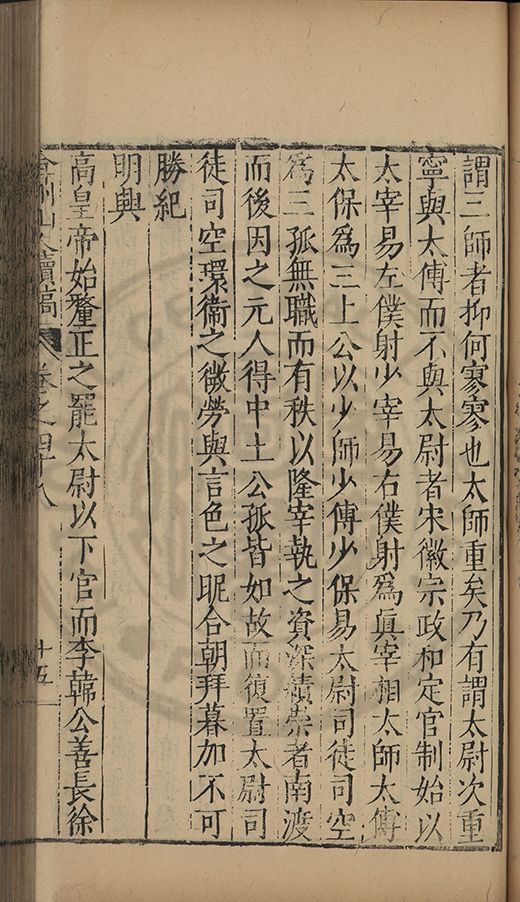 謂三師者抑何寥寥也太師重矣乃有謂太尉次重
寧與太傅而不與太尉者宋徽宗政和定官制始以
太宰易左僕射少宰易右僕射爲眞宰相太師太傅
太保爲三上公以少師少傅少保易太尉司徒司空
爲三孤無職而有秩以隆宰執之資深績崇者南渡
而後因之元人得中土公孤皆如故而復置太尉司
徒司空環衞之微勞與言色之昵合朝拜暮加不可
勝紀
明興
高皇帝始釐正之罷太尉以下官而李韓公善長徐
弇州山人續稿 卷之四十八 十五